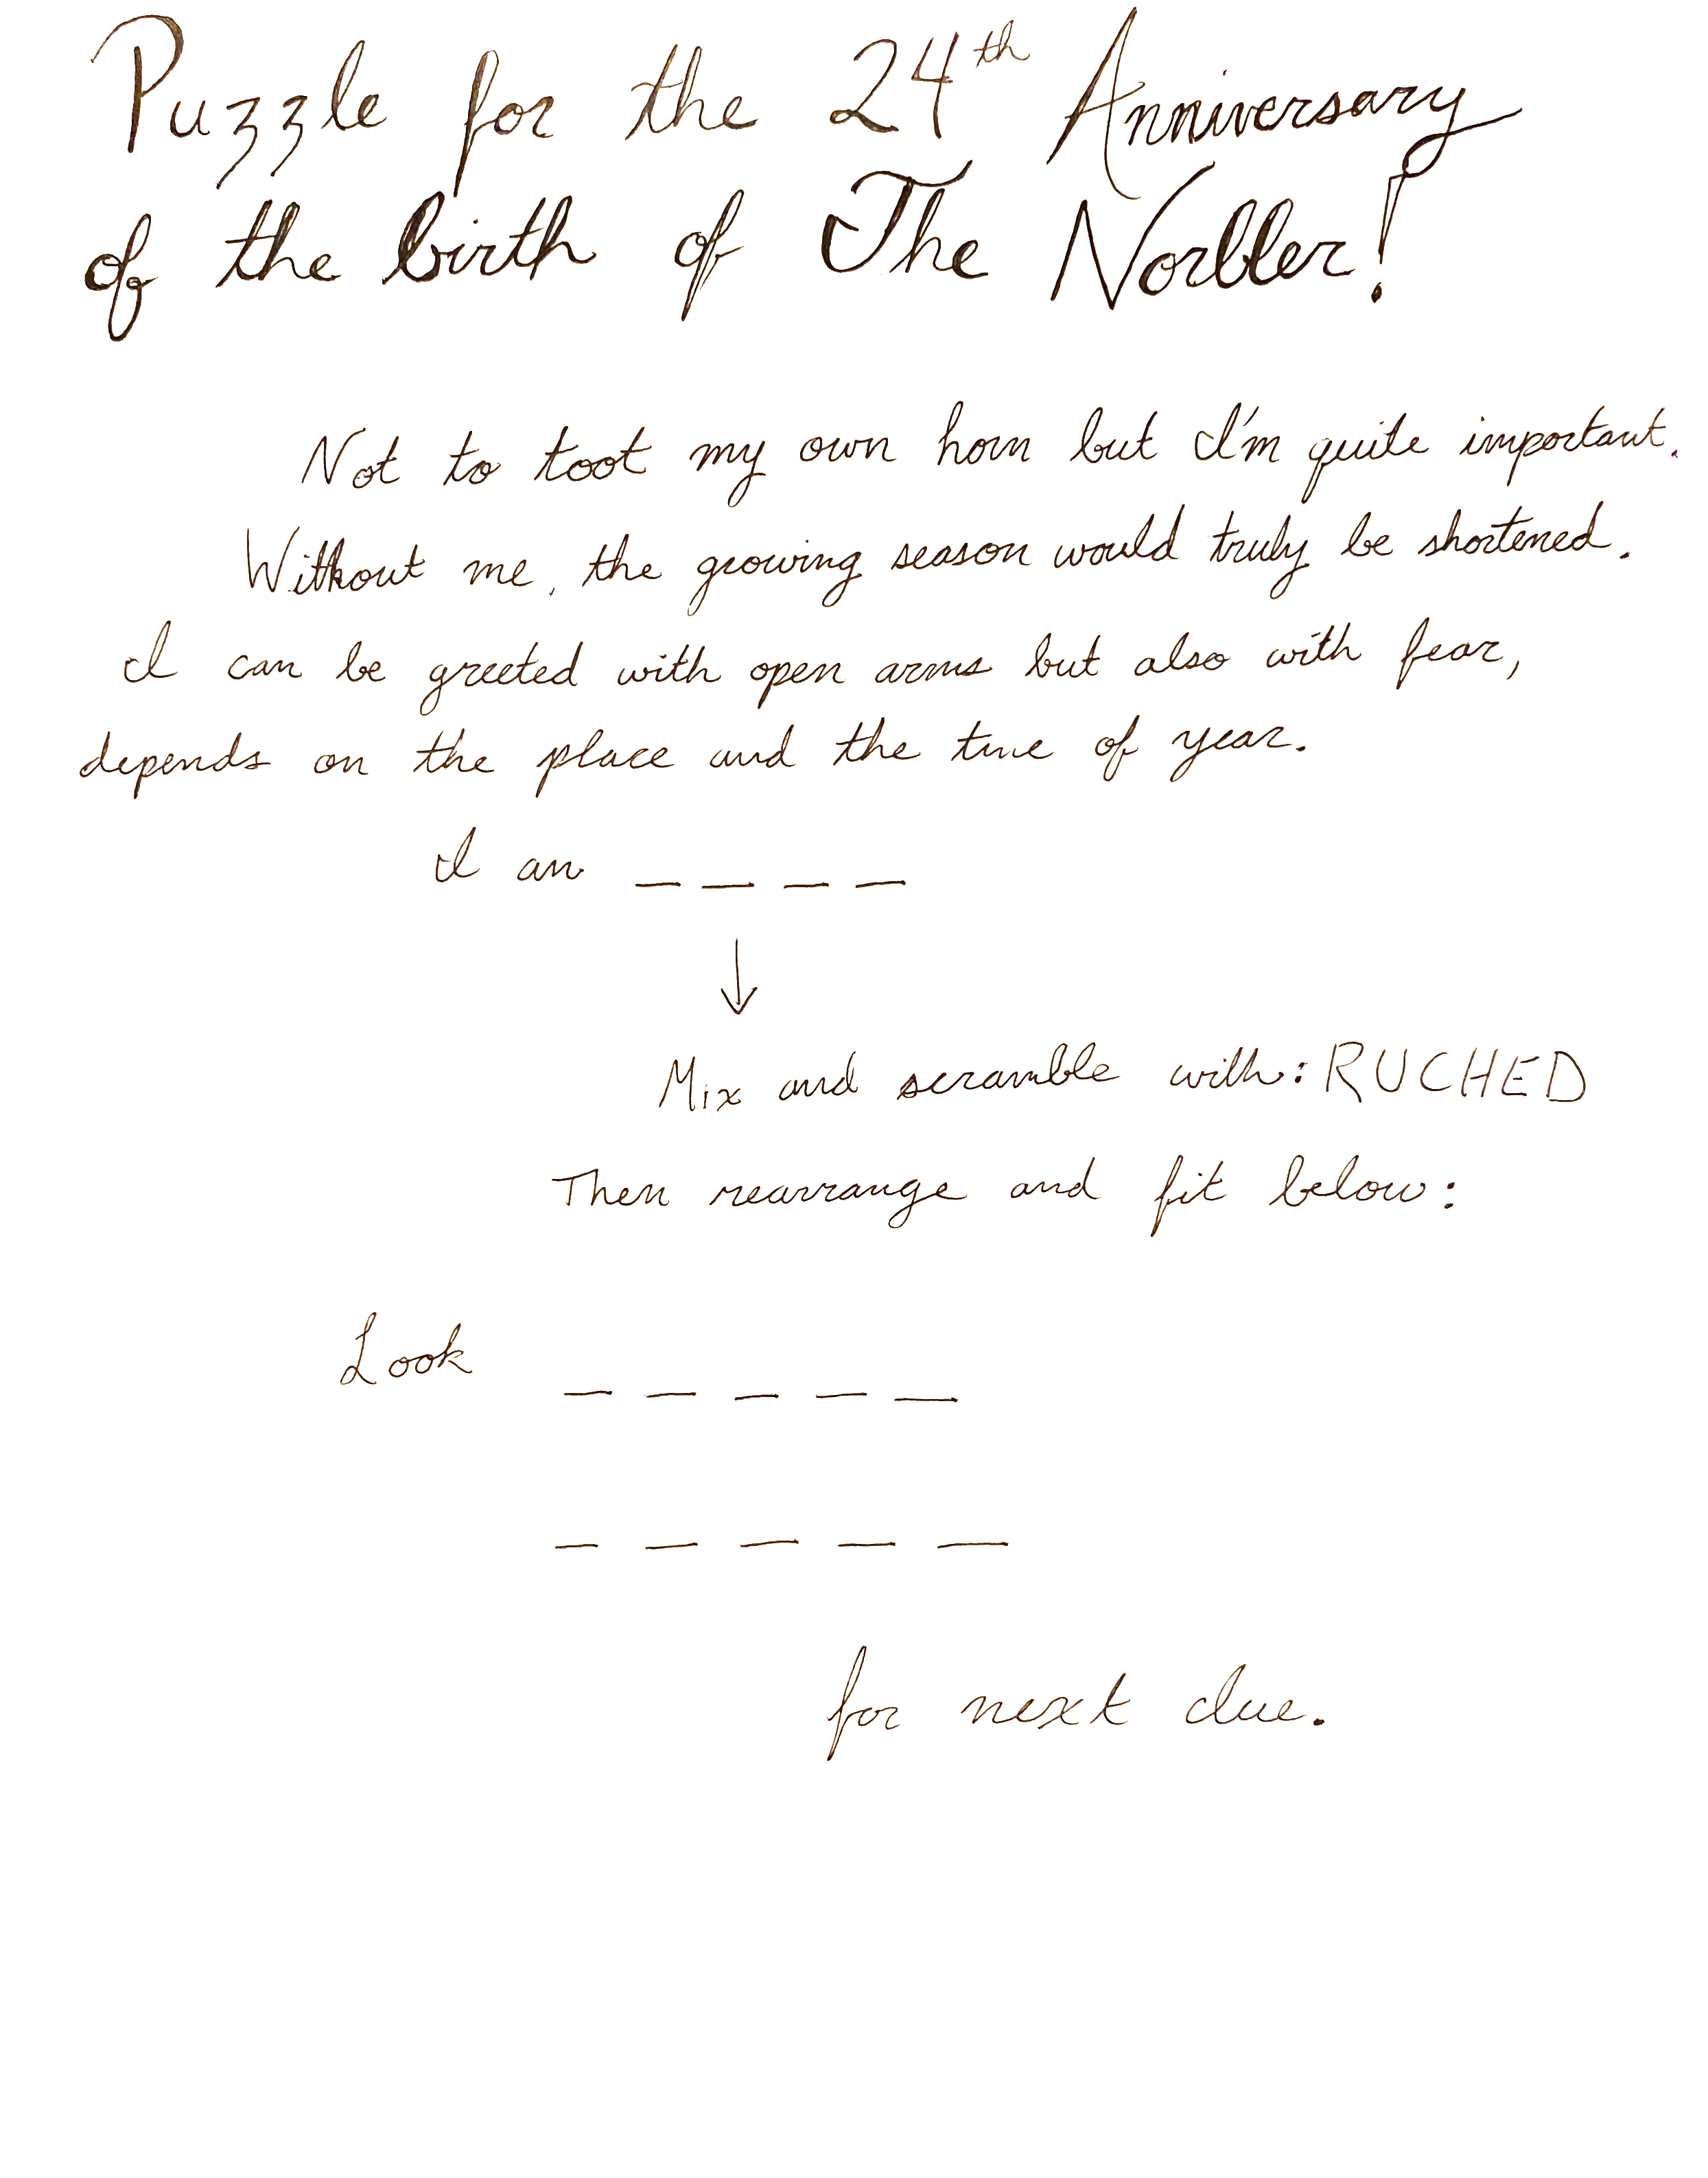 Puzzle for the 24th Anniversary
of the birth of The Norbler!
Not to toot my own horn but I'm quite important.
Without me, the growing season would truly be shortened.
I can be greeted with open arms but also with fear,
depends on the place and the time of year.
I am _ _ _ _
↓
Mix and scramble with: RUCHED
Then rearrange and fit below:
Look _ _ _ _ _
_ _ _ _ _
for next clue.